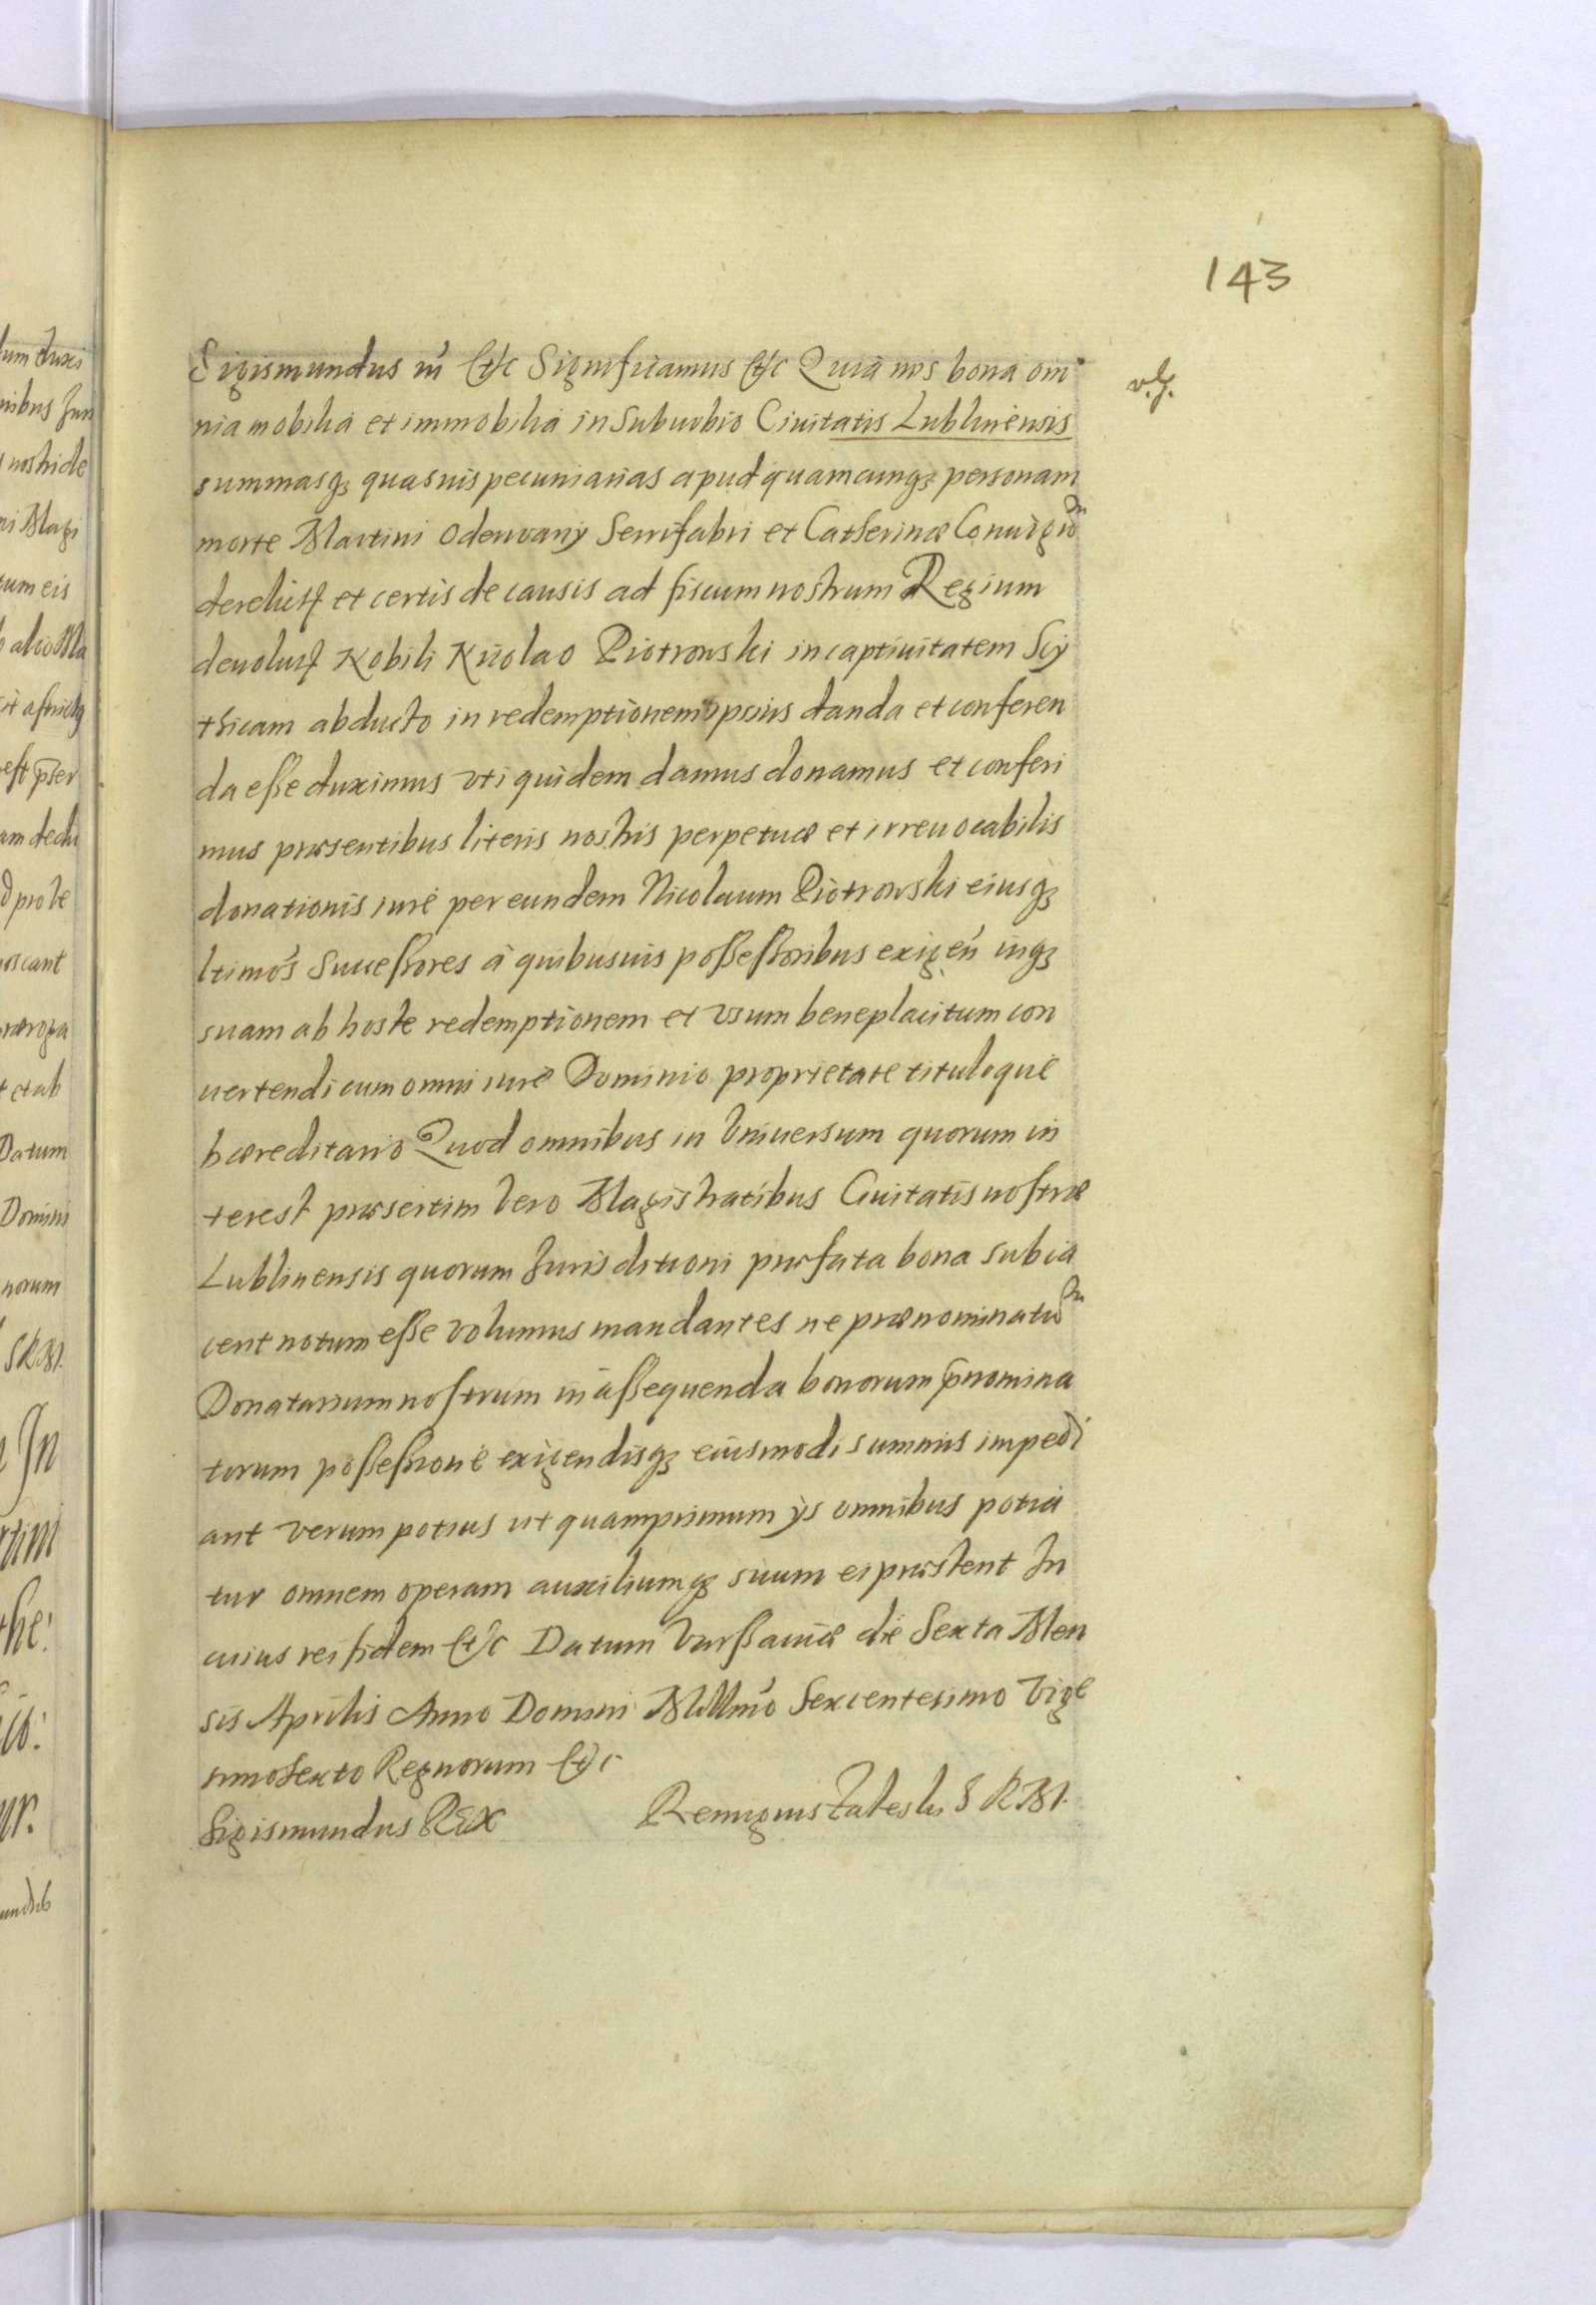 143
Sigismundus iii &c Significamus &c Quia nos bona om
nia mobilia et immobilia in Suburbio Ciuitatis Lublinensis
summasq3 quasuis pecuniarias apud quamcunq3 personam
morte Martini Oderwany Serrifabri et Catherinæ Coniugu
derelict et certis de causis ad fiscum nostrum Regium
deuolut Nobili Nicolao Piotrowski in captiuitatem Scy
thicam abducto in redemptionem ipsius danda et conferen
da eße duximus vti quidem damus donamus et conferi
mus præsentibus literis nostris perpetuæ et irreuocabilis
donationis iure per eundem Nicolaum Piotrowski eiusq3
ltimos Succeßores à quibusuis poßeßoribus exigen inq3
suam ab hoste redemptionem et vsum beneplacitum con
uertendi cum omni iure Dominio proprietate tituloque
hæreditario Quod omnibus in Vniuersum quorum in
terest præsertim Vero Magistratibus Ciuitatis nostræ
Lublinensis quorum Jurisdictioni præfata bona subia
cent notum eße volumus mandantes ne prænominatu
Donatarium nostrum in aßequenda bonorum p̄nomina
torum poßeßione exigendisq3 eiusmodi summis impedi
ant verum potius ut quamprimum ijs omnibus potia
tur omnem operam auxiliumq3 suum ei præstent In
cuius rei fidem &c Datum Varßauiæ die Sexta Men
sis Aprilis Anno Domini Millmo Sexcentesimo Vige
simo Sexto Regnorum &c
Sigismundus REX Remigius Zaleski S R M.